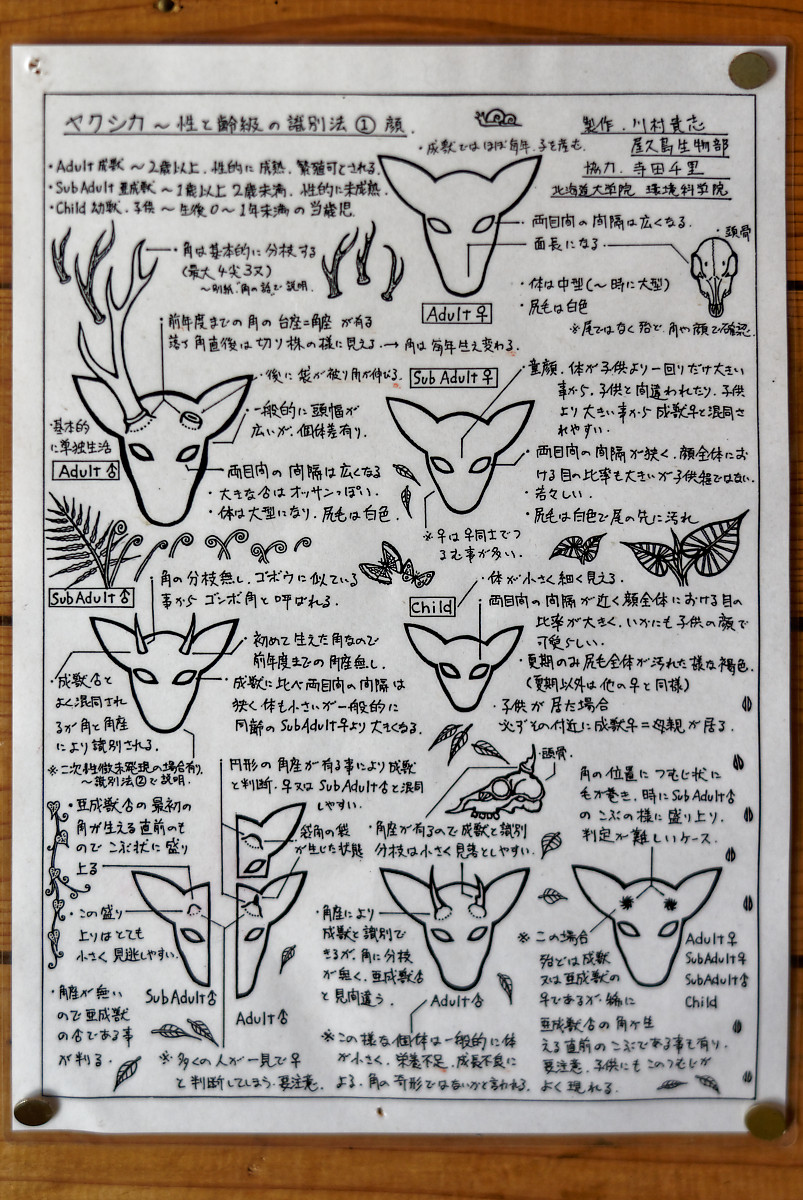 ヤクシカ～性と齢級の識別法①顔.
製作.川村貴志
屋久島生物部
協力.寺田千里
北海道大学院 環境科学院
・Adult 成獣 ～2歳以上.性的に成熟.繁殖可とされる.
・SubAdult 亜成獣 ～1歳以上2歳未満.性的に未成熟.
・Child 幼獣.子供～生後0～1年未満の当歳児.
・成獣ではほぼ毎年.子を産む.
・両目間の間隔は広くなる.
・面長になる
・頭骨
・体は中型(～時に大型)
・尻毛は白色
※尾ではなく殆ど.角や顔で確認.
Adult♀
・角は基本的に分枝する
(最大4尖3又)
～別紙"角の話"で説明.
・前年度までの角の台座=角座が有る
落ち角直後は切り株の様に見える.→角は毎年生え変わる.
・後に袋が被り角が伸びる.
・一般的に頭幅が
広いが.個体差有り.
・基本的
に単独生活
Adult♂
・両目間の間隔は広くなる
・大きな♂はオッサンっぽい.
・体は大型になり.尻毛は白色.
Sub Adult♀
・童顔.体が子供より一回りだけ大きい
事から.子供と間違われたり.子供
より大きい事から成獣♀と混同さ
れやすい.
・両目間の間隔が狭く.顔全体にお
ける目の比率も大きいが子供程ではない.
・若々しい.
・尻毛は白色で尾の先に汚れ
※♀は♀同士でつ
るむ事が多い.
SubAdult♂
・角の分枝無し.ゴボウに似ている
事からゴンボ角と呼ばれる.
・初めて生えた角なので
前年度までの角座無し.
・成獣に比べ両目間の間隔は
狭く体も小さいが一般的に
同齢のSubAdult♀より大きくなる.
・成獣♂と
よく混同され
るが角と角座
により識別される.
※二次性徴未発現の場合有り.
～識別法②で説明.
Child
・体が小さく細く見える.
・両目間の間隔が近く顔全体における目の
比率が大きく.いかにも子供の顔で
可愛らしい.
・夏期のみ尻毛全体が汚れた様な褐色.
(夏期以外は他の♀と同様)
・子供が居た場合
必ずその付近に成獣♀=母親が居る.
・円形の角座が有る事により成獣
と判断.♀又はSubAdult♂と混同
しやすい.
・亜成獣♂の最初の
角が生える直前のも
のでこぶ状に盛り
上る
・この盛り
上りはとても
小さく見逃しやすい.
・角座が無い
ので亜成獣
の♂である事
が判る.
SubAdult♂
・袋角の袋
が生じた状態
Adult♂
※多くの人が一見で♀
と判断してしまう.要注意.
・頭骨.
・角座が有るので成獣と識別
分枝は小さく見落としやすい.
・角座により
成獣と識別で
きるが.角に分枝
が無く.亜成獣♂
と見間違う.
Adult♂
※この様な個体は一般的に体
が小さく.栄養不足.成長不良に
よる.角の奇形ではないかと言われる.
角の位置につむじ状に
毛が巻き.時にSubAdult♂
のこぶの様に盛り上り.
判定が難しいケース.
※この場合
殆どは成獣
又は亜成獣の
♀であるが.稀に
亜成獣♂の角が生
える直前のこぶである事も有り.
要注意.子供にもこのつむじが
よく現れる.
Adult♀
SubAdult♀
SubAdult♂
Child